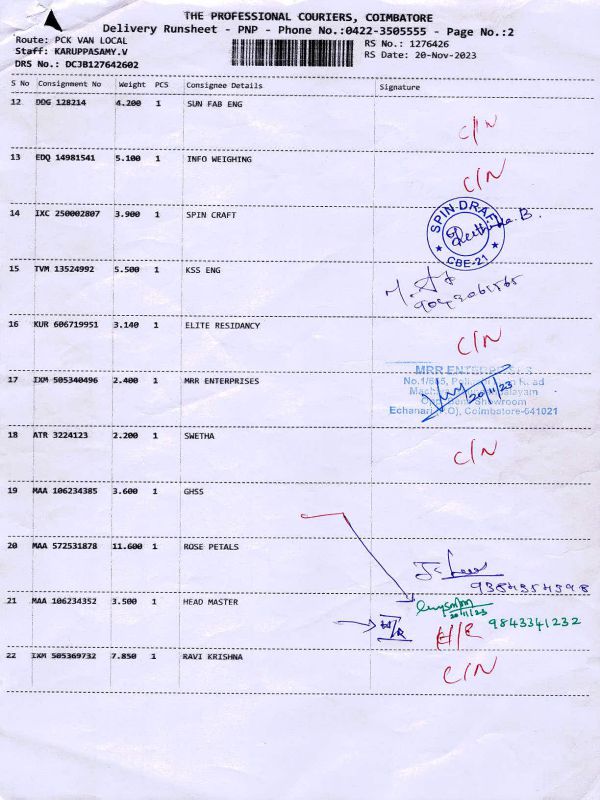 THE PROFESSIONAL COURIERS, COIMBATORE
Delivery Runsheet - PNP - Phone No.:0422-3505555 - Page No.:2
Route: PCK VAN LOCAL
RS No.: 1276426
Staff: KARUPPASAMY.V
RS Date: 20-Nov-2023
DRS No.: DCJB127642602
S No Consignment No Weight PCS Consignee Details Signature
12 DDG 128214 4.200 1 SUN FAB ENG
C/N
13 EDQ 14981541 5.100 1 INFO WEIGHING
C/N
14 IXC 250002807 3.900 1 SPIN CRAFT
SPIN-DRAFT
CBE-21
15 TVM 13524992 5.500 1 KSS ENG
16 KUR 606719951 3.140 1 ELITE RESIDANCY
C/N
17 IXM 505340496 2.400 1 MRR ENTERPRISES
MRR ENTERPRISES
No.1/685,
20/11/23
Showroom
Coimbatore-641021
18 ATR 3224123 2.200 1 SWETHA
C/N
19 MAA 106234385 3.600 1 GHSS
20 MAA 572531878 11.600 1 ROSE PETALS
9384354598
21 MAA 106234352 3.500 1 HEAD MASTER
20/11/23
9843341232
22 IXM 505369732 7.850 1 RAVI KRISHNA
C/N